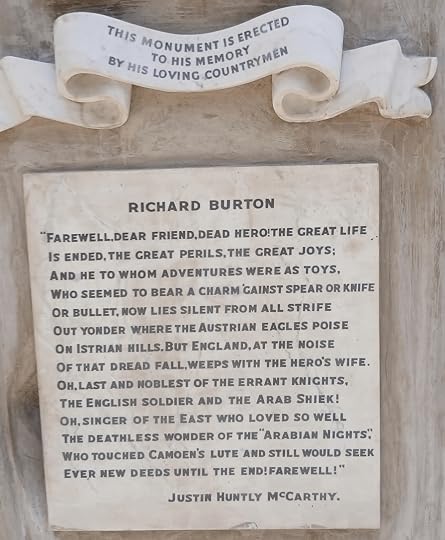 THIS MONUMENT IS ERECTED
TO HIS MEMORY
BY HIS LOVING COUNTRYMEN
RICHARD BURTON
"FAREWELL, DEAR FRIEND, DEAD HERO! THE GREAT LIFE
IS ENDED, THE GREAT PERILS, THE GREAT JOYS;
AND HE TO WHOM ADVENTURES WERE AS TOYS,
WHO SEEMED TO BEAR A CHARM 'GAINST SPEAR OR KNIFE
OR BULLET, NOW LIES SILENT FROM ALL STRIFE
OUT YONDER WHERE THE AUSTRIAN EAGLES POISE
ON ISTRIAN HILLS. BUT ENGLAND, AT THE NOISE
OF THAT DREAD FALL, WEEPS WITH THE HERO'S WIFE.
OH, LAST AND NOBLEST OF THE ERRANT KNIGHTS,
THE ENGLISH SOLDIER AND THE ARAB SHIEK!
OH, SINGER OF THE EAST WHO LOVED SO WELL
THE DEATHLESS WONDER OF THE "ARABIAN NIGHTS",
WHO TOUCHED CAMOEN'S LUTE AND STILL WOULD SEEK
EVER NEW DEEDS UNTIL THE END! FAREWELL!"
JUSTIN HUNTLY McCARTHY.